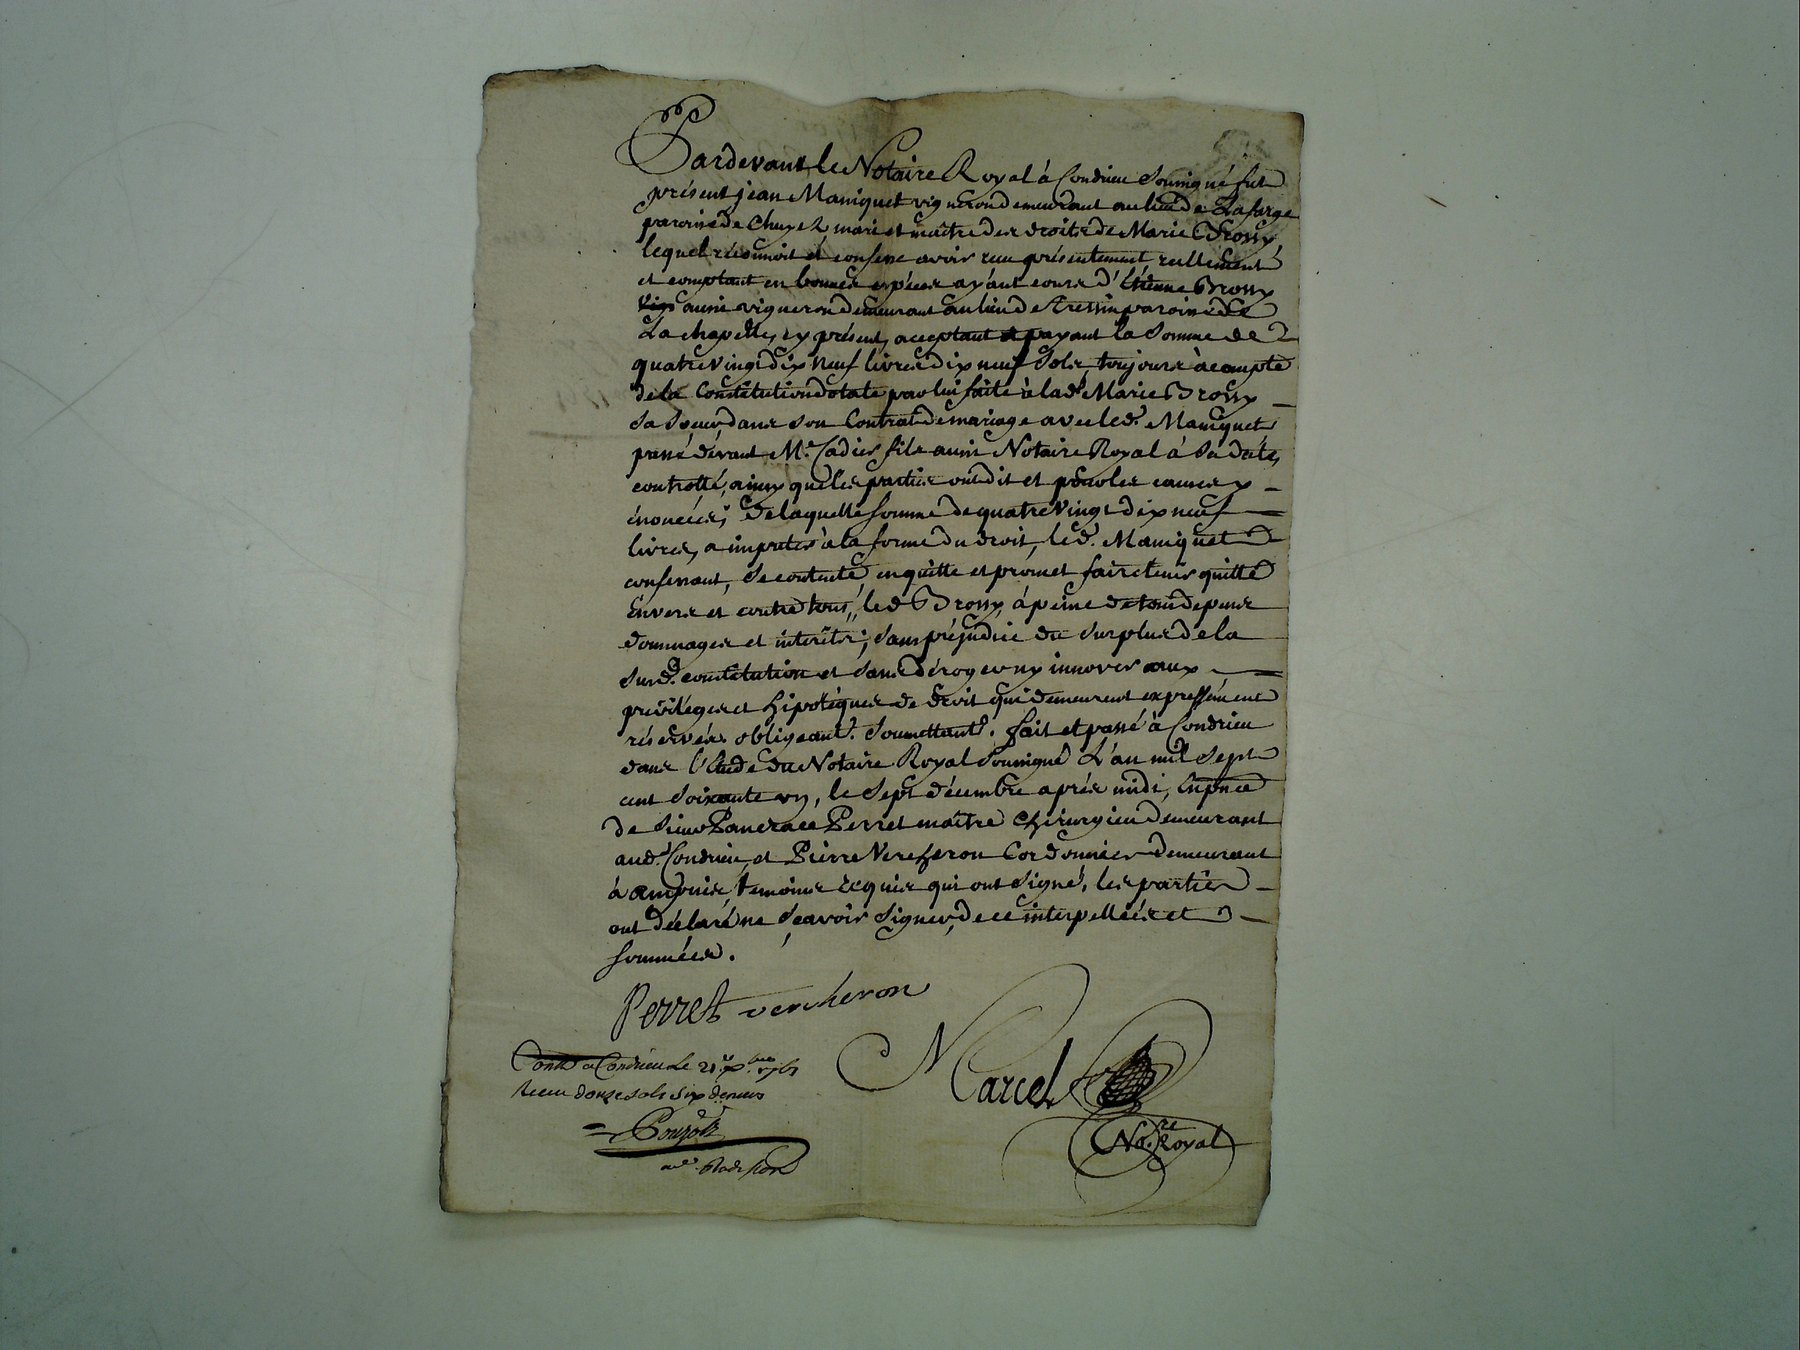 Pardevant le Notaire Royal à Condrieu Soussigné fut
présent jean Maniquet vigneron demeurant au lieu de Lafarge
paroisse de Chuyer mari et maître des droits de Marie Brossy
lequel réconnoit et confesse avoir reçu présentement réellement
et comptant en bonnes espéces ayant cours d'Etienne Brossy
aussi vigneron demeurant au lieu de paroisse de
La chapelle, cy présent, acceptant et payant la Somme de
quatre vingt dix Neuf livres dix neuf Sols, toujours à compte
de la Constitution dotale par lui faite à lad.e Marie Brossy
sa Soeur dans son Contrat de mariage avec led. Maniquet
passé dévant M.e Cadier fils aussi Notaire Royal à Sa date,
controllé, ainsy que les parties ont dit et pour les causes y
énoncées, de laquelle somme de quatre Vingt dix neuf
livres, a imputer à la forme du droit, led. Maniquet
confessant, Se contente, en quitte et promet faire tenir quitte
Envers et contre tous, led Brossy, à peine de tous depens
dommages et intérêts; sans préjudice du Surplus de la
Susd. constitution et Sans déroger ny innover aux
priviléges et hipotéques de droit qui demeurent expressément
réservés. obligeant. Soumettant. fait et passé à Condrieu
dans l'Etude du Notaire Royal Soussigné L'an mil Sept
cent Soixante un, le Sept décembre aprés midi, En pnce
de Sieur Pancrace Perret maître Chirurgien demeurant
aud. Condrieu, et Pierre Vercheron Cordonnier demeurant
à ampuis, temoins réquis qui ont Signé, les parties
ont déclaré ne Sçavoir Signer, de ce interpellées et
sommées.
Perret vercheron
Contlé a Condrieu le 21 xbre 1761
Receu douze sols Six deniers
Marcel
No.re Royal